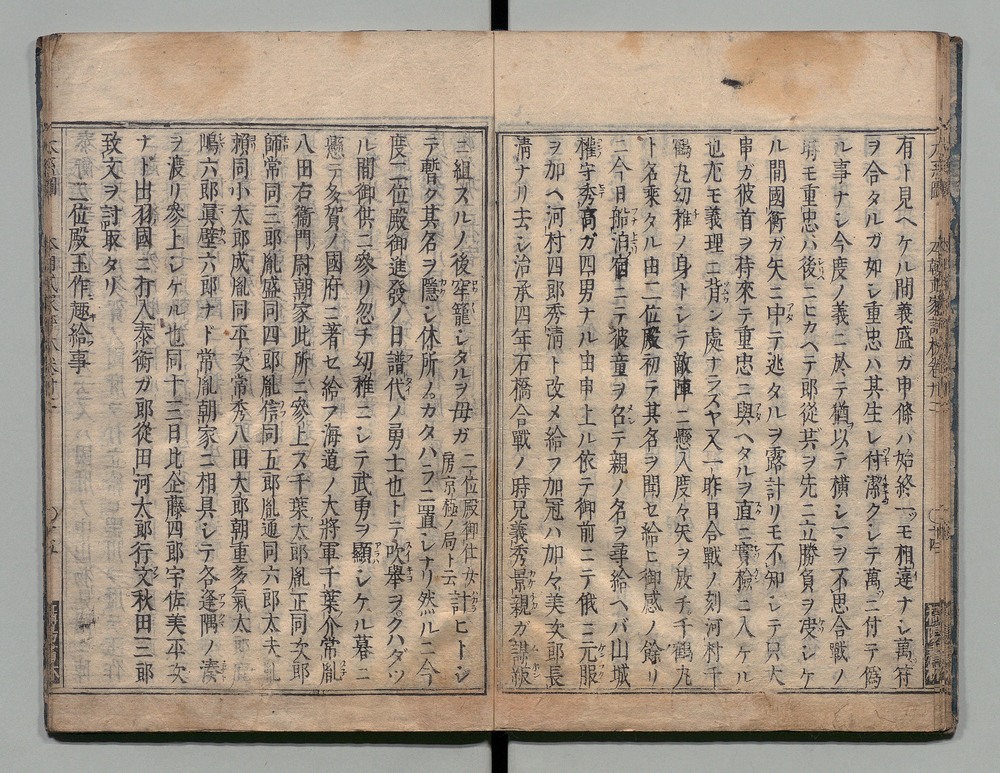 有ト見ヘケル間義盛ガ申條ハ始終一ツモ相違ナシ萬符
ヲ合タルガ如シ重忠ハ其生レ付潔クシテ萬ニ付テ僞
ル事ナシ今度ノ義ニ於テ猶以テ横シマヲ不思合戰ノ
モ重忠ハ後ニヒカヘテ郎從其ヲ先ニ立勝負ヲ シケ
ル間國衡ガ矢ニ中テ逃タルヲ露計リモ不知シテ只大
串ガ彼首ヲ持來テ重忠ニ與ヘタルヲ直ニ實檢ニ入ケル
也尤モ義理ニ背ン處ナラスヤ又一昨日合戰ノ刻河村千
鶴丸幼稚ノ身トシテ敵陣ニ懸入度々矢ヲ放チ千鶴丸
ト名乘タル由二位殿初テ其名ヲ聞セ給ヒ御感ノ餘リ
ニ今日船泊宿ニテ彼童ヲ名テ親ノ名ヲ尋給ヘバ山城
權守秀高ガ四男ナル由申上ル依テ御前ニテ俄ニ元服
ヲ加ヘ河村四郎秀淸ト改メ給フ加冠ハ加々美次郎長
淸ナリ去シ治承四年石橋合戰ノ時兄義秀景親ガ謀叛
ニ組スルノ後牢籠シタルヲ母ガ 二位殿御仕女 計ヒトシ
房京極ノ局ト云
テ暫ク其名ヲ隱シ休所ノカタハラニ置シナリ然ルニ今
度二位殿御進發ノ日譜代ノ勇士也トテ吹擧ヲクハダツ
ル間御供ニ參リ忽チ幼稚ニシテ武勇ヲ顯シケル暮ニ
懸テ多賀ノ國府ニ著セ給フ海道ノ大將軍千葉介常胤
八田右衞門尉朝家此所ニ參上ス千葉太郎胤正同次郎
師常同三郎胤盛同四郎胤信同五郎胤通同六郎太夫胤
賴同小太郎成胤同平次常秀八田太郎朝重多氣太郎
鴫六郎眞壁六郎ナド常胤朝家ニ相具シテ各逢隅ノ湊
ヲ渡リ參上シケル也同十三日比企藤四郎宇佐美平次
ナド出羽國ニ打入泰衡ガ郎從田河太郎行文秋田三郎
致文ヲ討取タリ
泰衡ニ位殿玉作趣給事